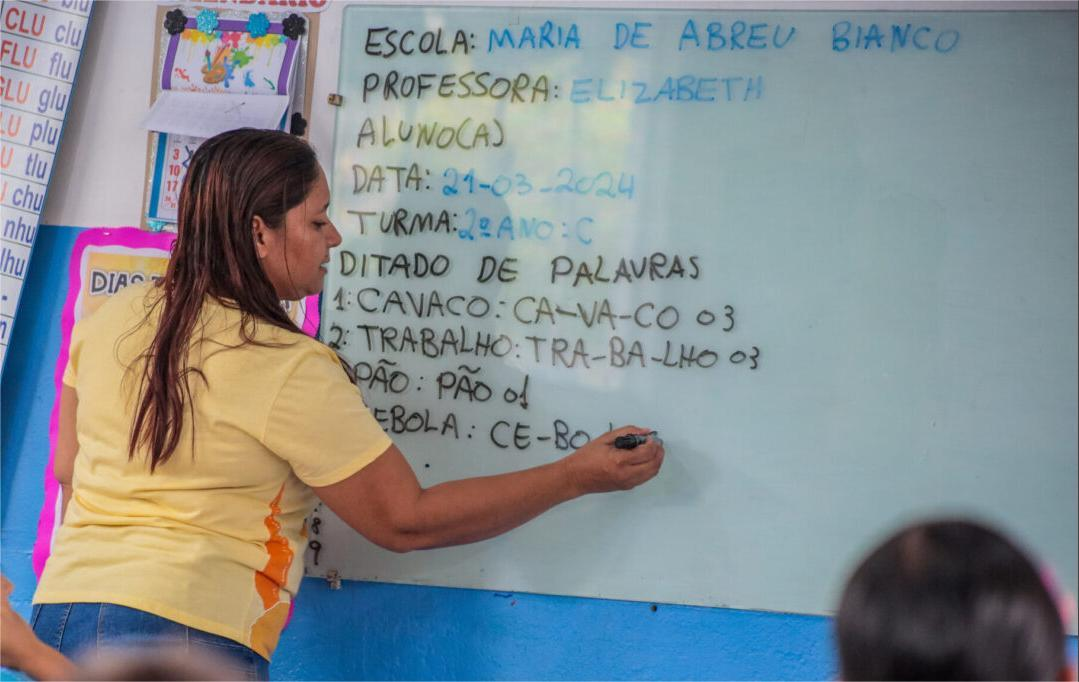 blu
CLU clu
FLU flu
GLU glu
LU plu
U tlu
U chu
nhu
lhu
3
10
17
DIAS
ESCOLA: MARIA DE ABREU BIANCO
PROFESSORA: ELIZABETH
ALUNO(A)
DATA: 21-03-2024
TURMA: 2º ANO: C
DITADO DE PALAVRAS
1: CAVACO: CA-VA-CO 03
2: TRABALHO: TRA-BA-LHO 03
PÃO: PÃO 01
EBOLA: CE-BO
8
9